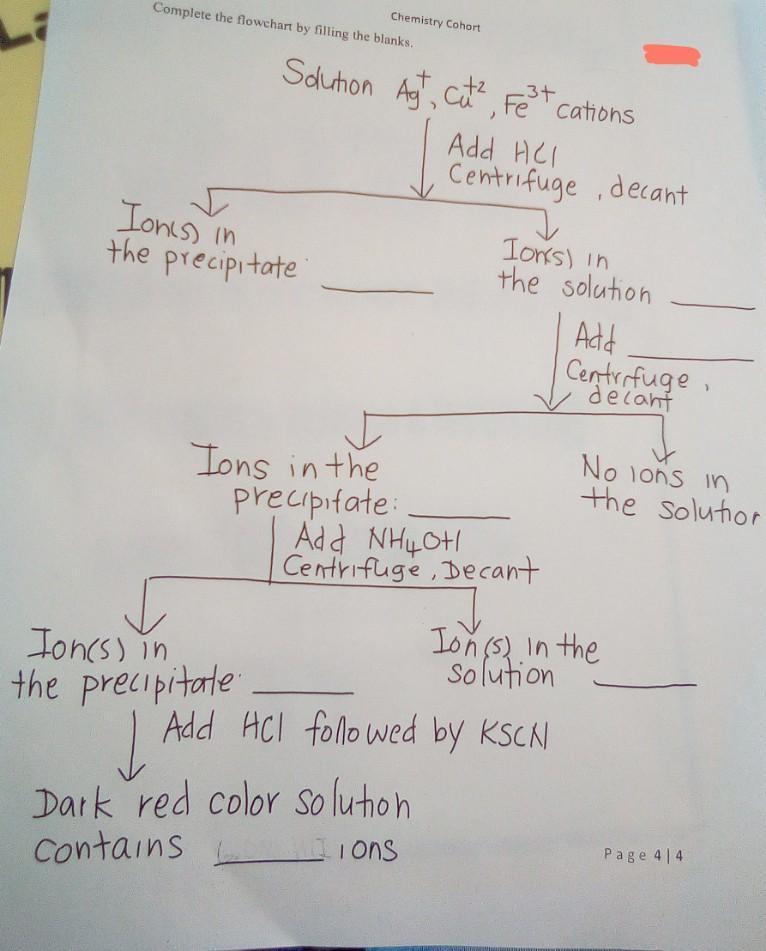 La
Chemistry Cohort
Complete the flowchart by filling the blanks.
Solution Ag⁺, Cu⁺², Fe³⁺ cations
Add HCl
Centrifuge, decant
Ion(s) in
the precipitate ______
Ion(s) in
the solution ______
Add ______
Centrifuge,
decant
Ions in the
precipitate: ______
No ions in
the solution
Add NH₄OH
Centrifuge, Decant
Ion(s) in
the precipitate: ______
Ion(s) in the
solution ______
Add HCl followed by KSCN
Dark red color solution
contains ______ ions
Page 4|4